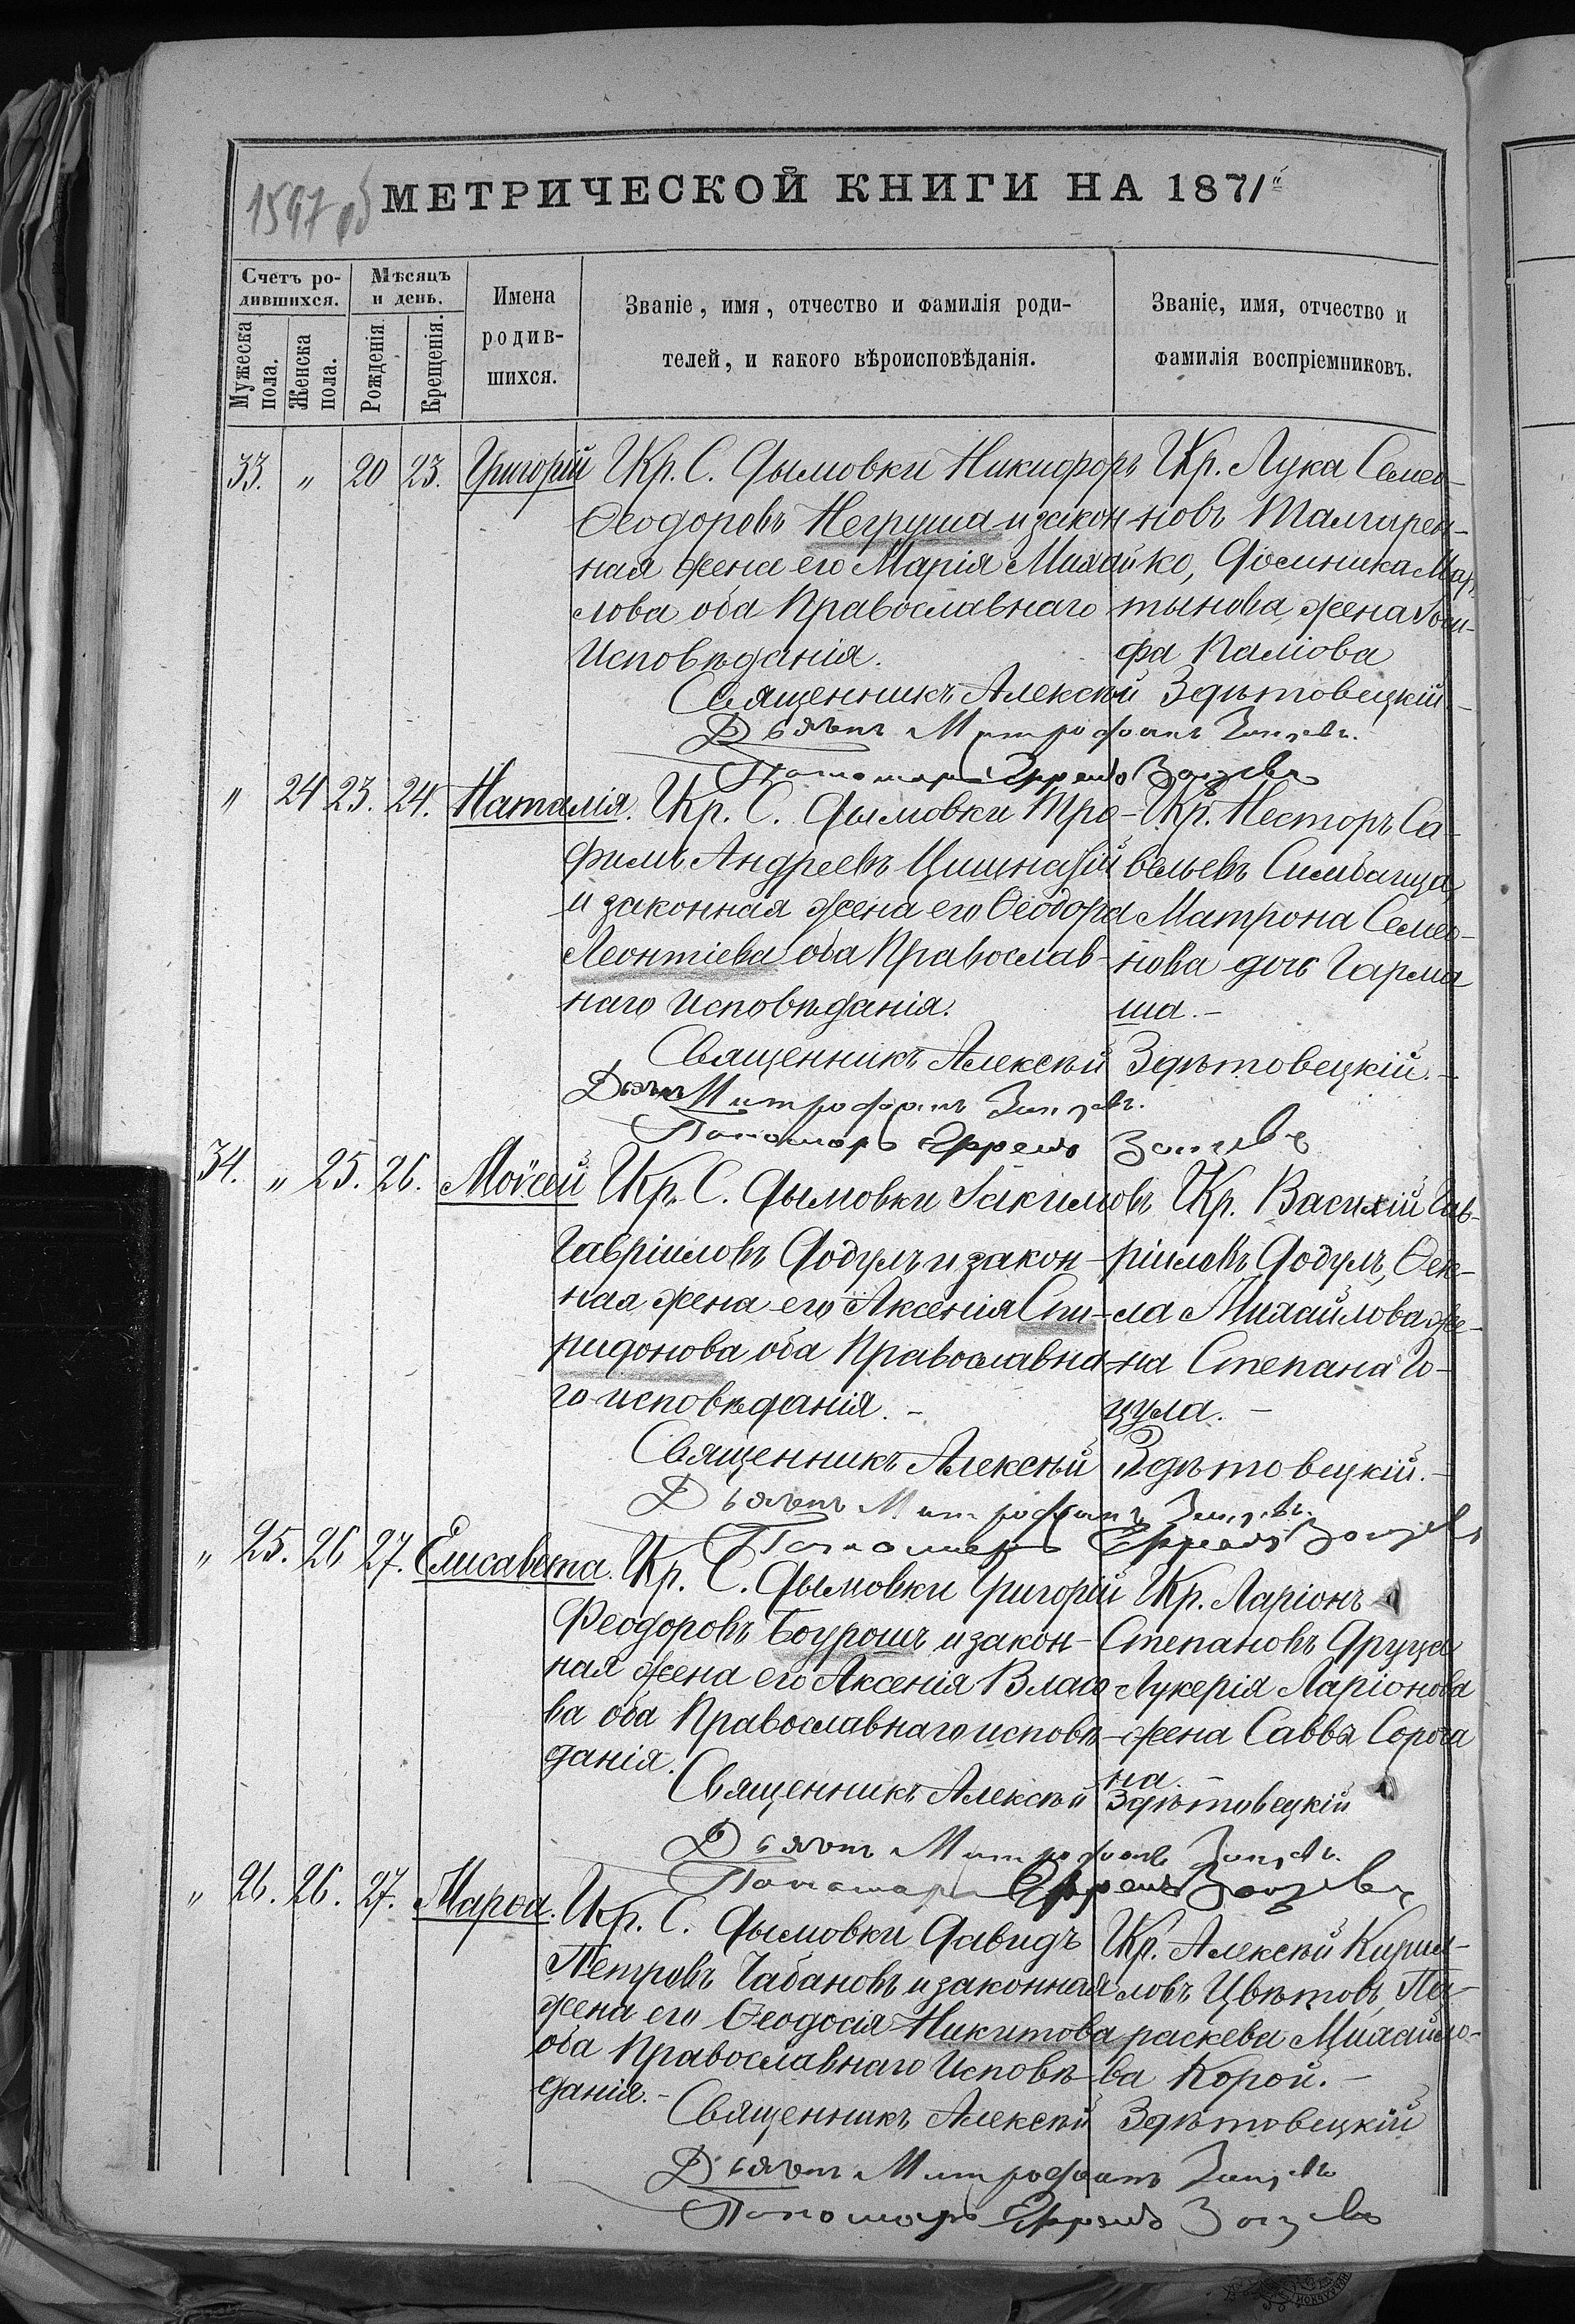 1597 об
МЕТРИЧЕСКОЙ КНИГИ НА 1871
Счетъ ро-
дившихся.
Мѣсяцъ
и день.
Имена
родив-
шихся.
Званіе, имя, отчество и фамилія роди-
телей, и какого вѣроисповѣданія.
Званіе, имя, отчество и
фамилія воспріемниковъ.
Мужеска
пола.
Женска
пола.
Рожденія.
Крещенія.
33. " 20 23. Григорій
Цкр. С. Дымовки Никифоръ
Ѳеодоровъ Негруша и закон
ная жена его Марія Михай
лова оба Православнаго
Исповѣданія.
Цкр. Лука Семео-
новъ Талмарен-
ко, Домника Мар
тынова, жена Іоси-
фа Паліова
Священникъ Алексѣй Здѣтовецкій.-
Дьячекъ Митрофанъ Зайцевъ.
Пономарь Ефремъ Зайцевъ
" 24 23. 24. Наталія.
Цкр. С. Дымовки Тро-
фимъ Андреевъ
и законная жена его Ѳеодора
Леонтіева оба Православ-
наго Исповѣданія.
Цкр. Несторъ Са-
вельевъ
Матрона Семео-
нова дочь Гарма
ша.-
Священникъ Алексѣй Здѣтовецкій.-
Дьячекъ Митрофанъ Зайцевъ.
Пономарь Ефремъ Зайцевъ
34. " 25. 26. Моѵсей
Цкр. С. Дымовки Іакимовъ
Гавріиловъ Додулъ и закон-
ная жена его Аксенія Спи-
ридонова оба Православна
го исповѣданія.-
Цкр. Василій Гав-
ріиловъ Додулъ, Ѳек-
ла Михайлова же-
на Степана Го-
цула.-
Священникъ Алексѣй Здѣтовецкій.-
Дьячекъ Митрофанъ Зайцевъ.
Пономарь Ефремъ Зайцевъ
" 25. 26 27. Елисавета.
Цкр. С. Дымовки Григорій
Феодоровъ Боурошъ и закон-
ная жена его Аксенія Власо
ва оба Православнаго исповѣ-
данія.
Цкр. Ларіонъ
Степановъ Друца
Лукерія Ларіонова
жена Саввы Сороча
на.-
Священникъ Алексѣй Здѣтовецкій
Дьячекъ Митрофанъ Зайцевъ.
Пономарь Ефремъ Зайцевъ
" 26. 26. 27. Марѳа.
Цкр. С. Дымовки Давидъ
Петровъ Чабановъ и законная
жена его Ѳеодосія Никитова
оба Православнаго Исповѣ-
данія.-
Цкр. Алексѣй Кирил-
ловъ Цвѣтовъ, Па-
раскева Михайло-
ва Корой.-
Священникъ Алексѣй Здѣтовецкій
Дьячекъ Митрофанъ Зайцевъ
Пономарь Ефремъ Зайцевъ